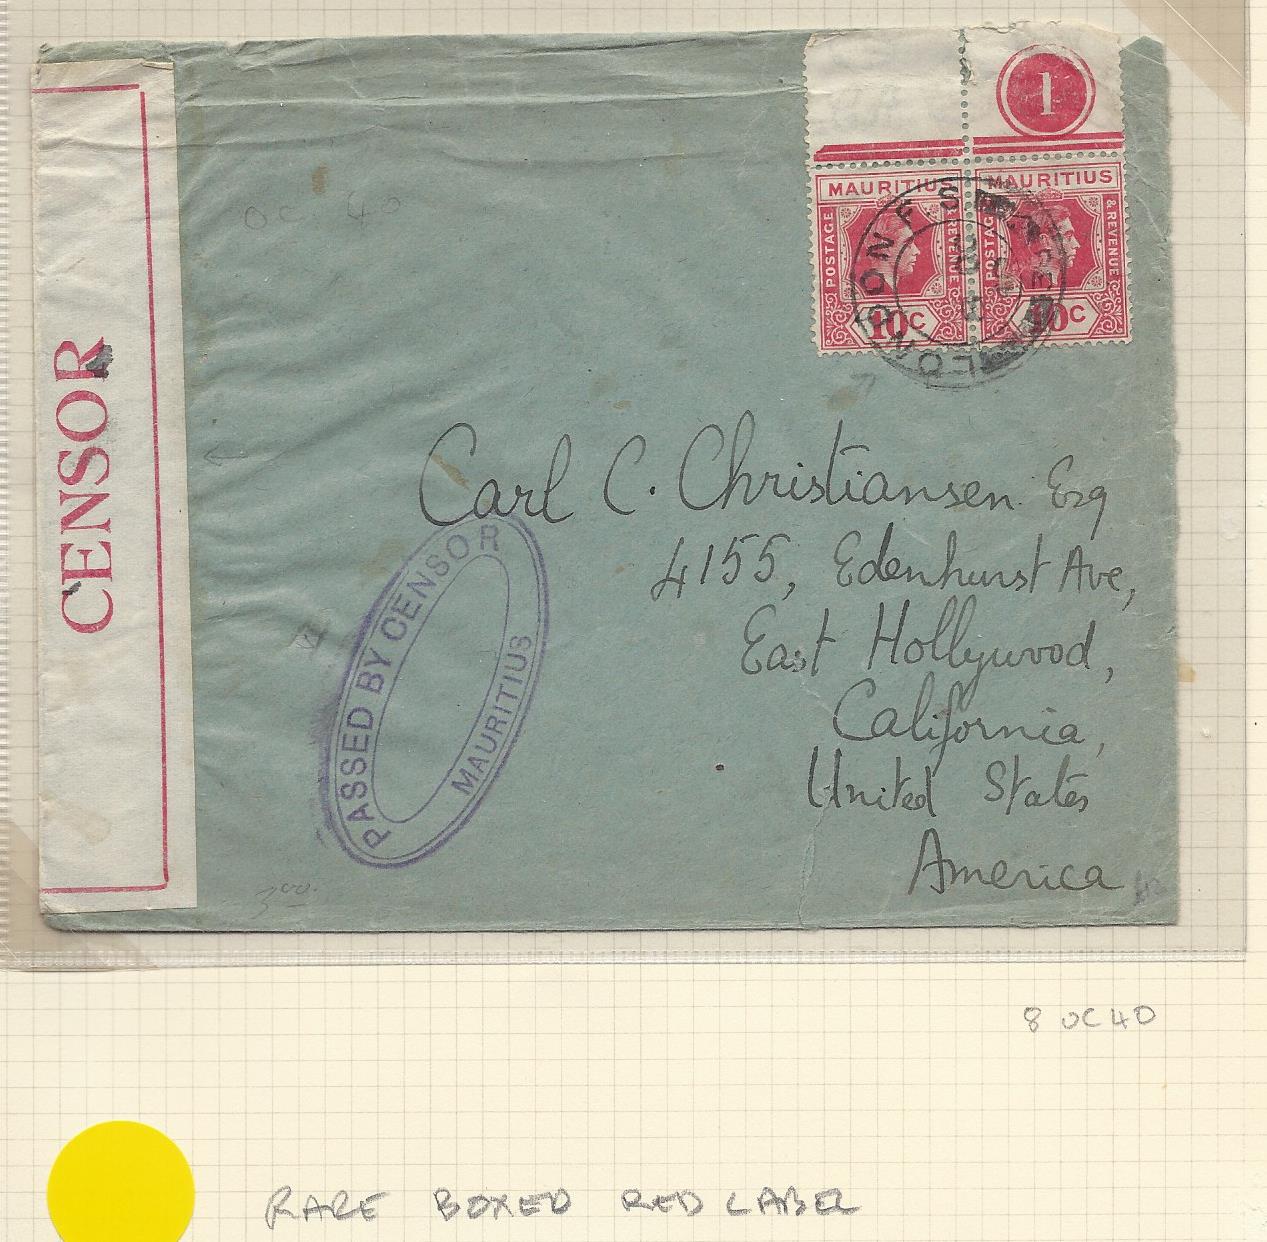 1
MAURITIUS MAURITIUS
POSTAGE & REVENUE
POSTAGE & REVENUE
10C 10C
LONDON F.S.
OC 40
CENSOR
Carl C. Christiansen Esq
4155, Edenhurst Ave,
East Hollywood,
California,
United States
America
PASSED BY CENSOR
MAURITIUS
3.00.
8 OC 40
RARE BOXED RED LABEL